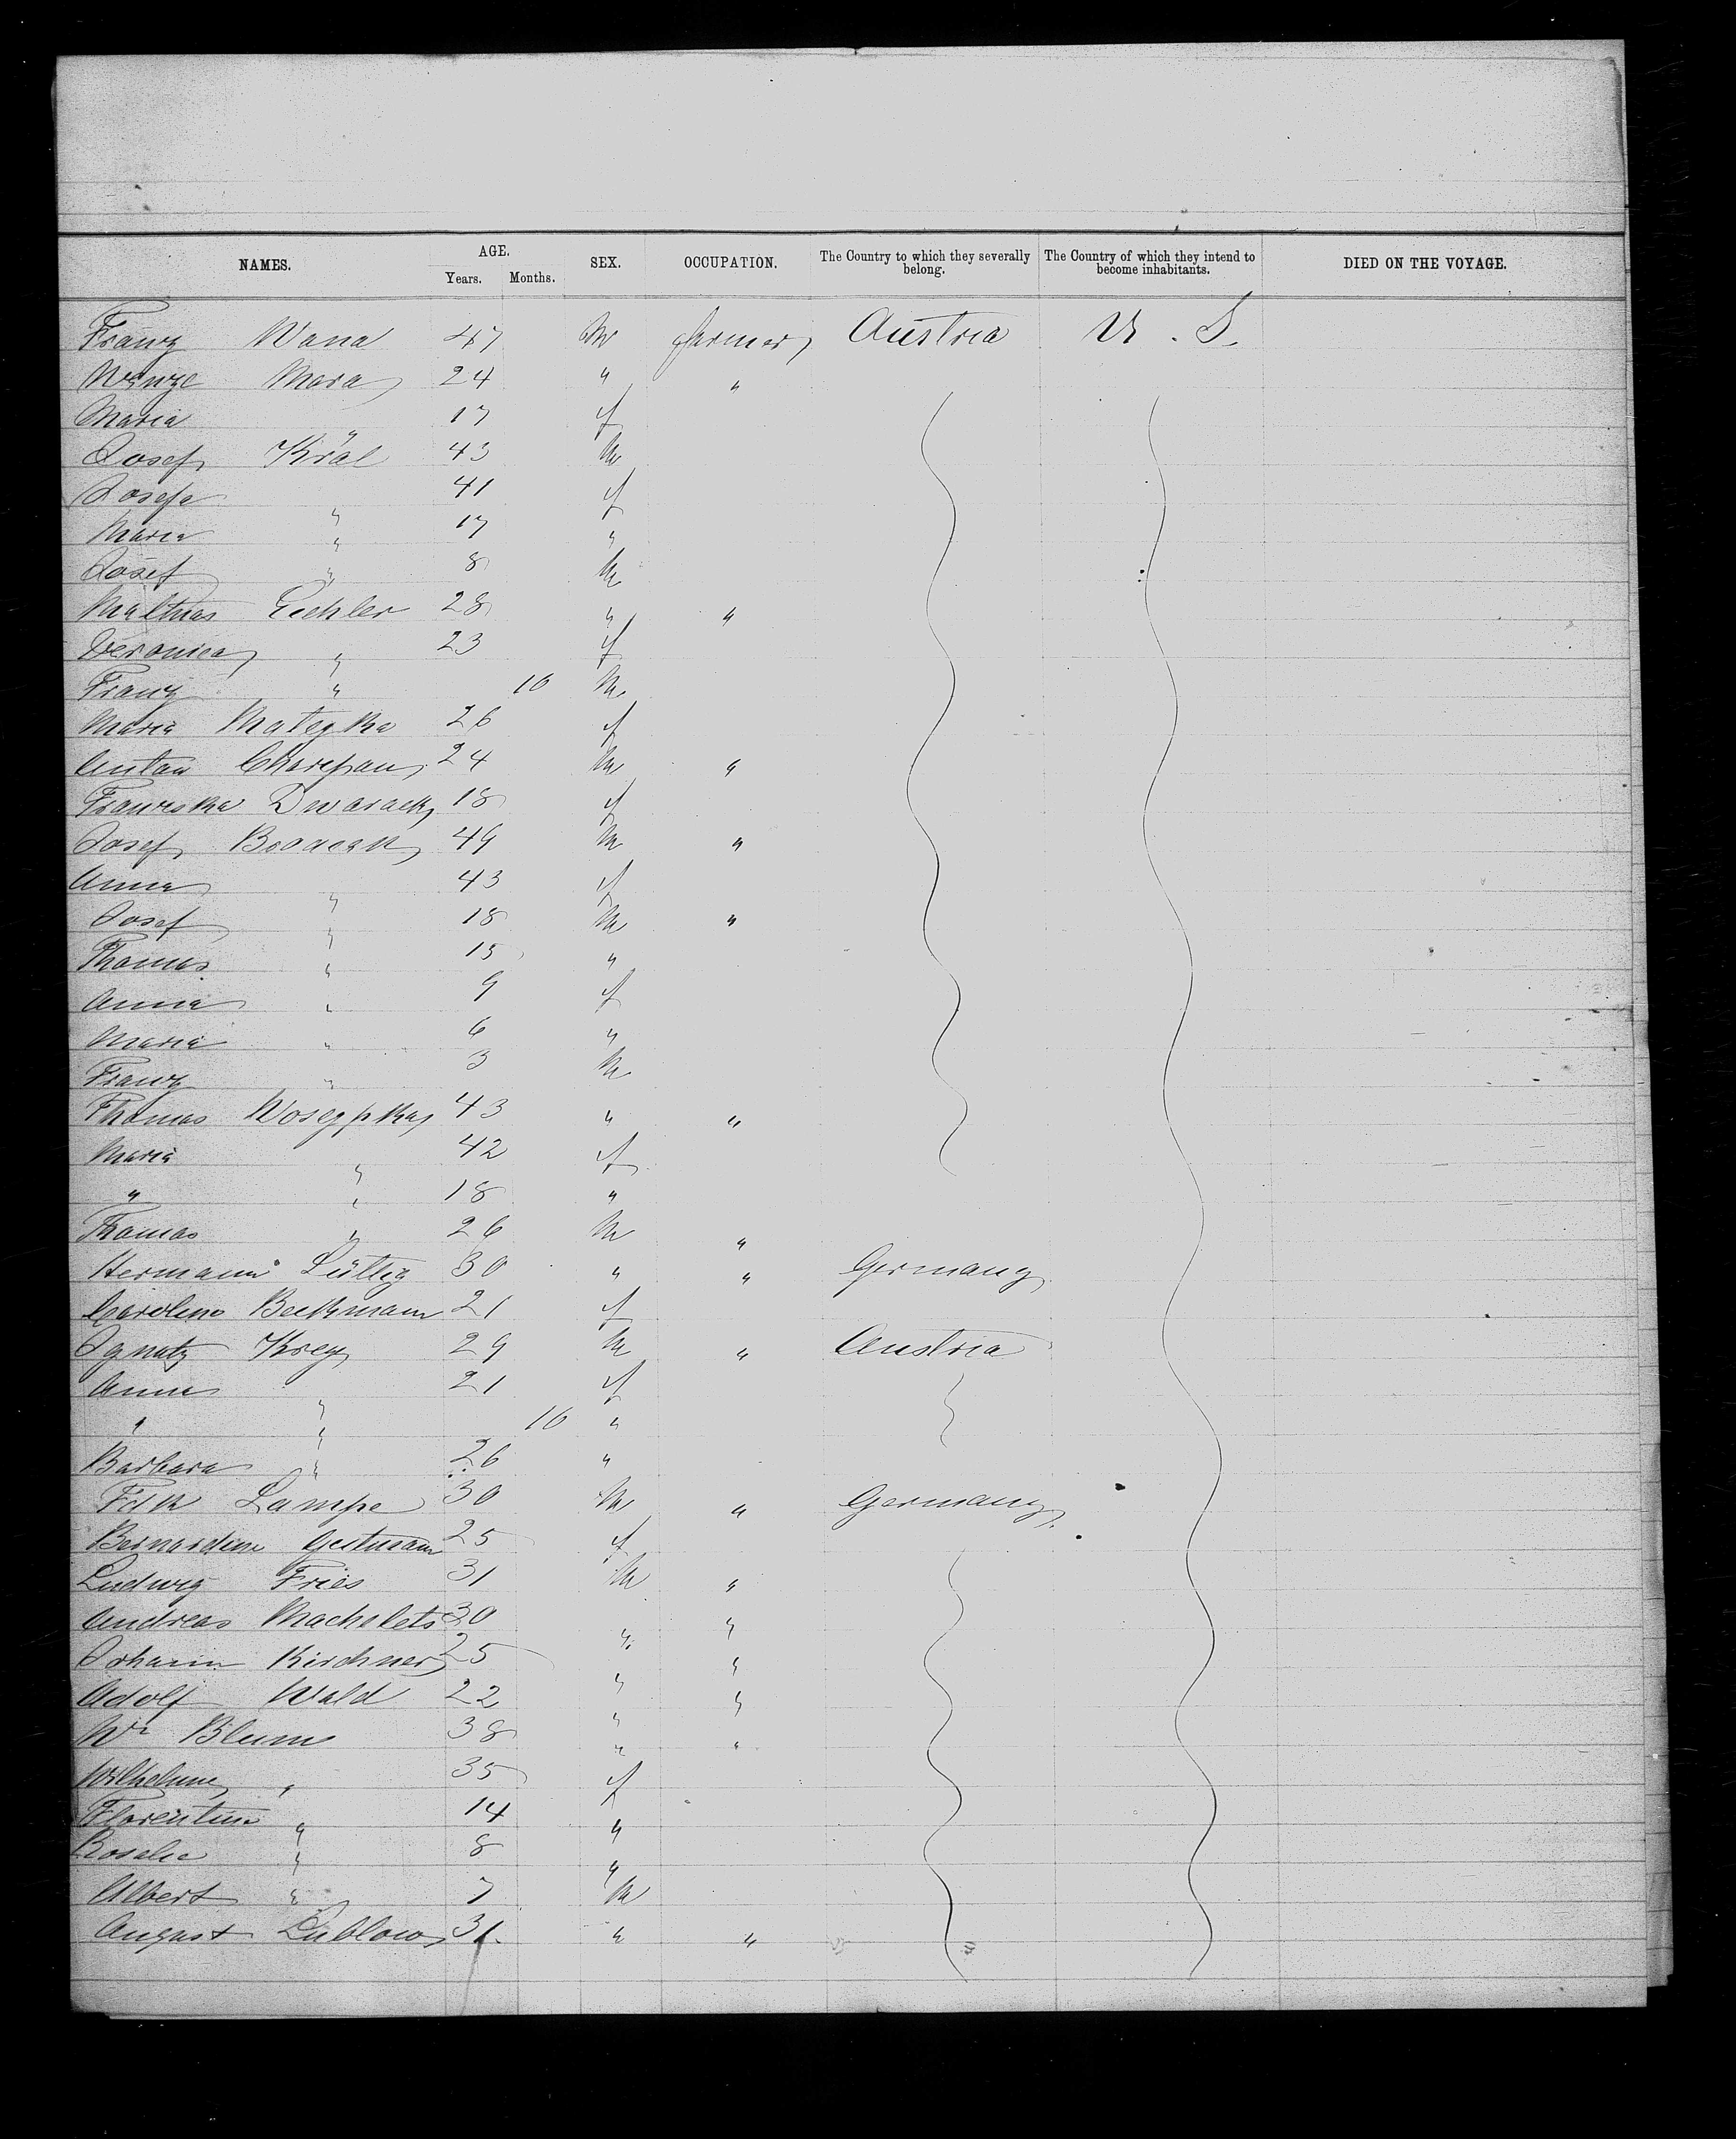 NAMES. AGE. Years. Months. SEX. OCCUPATION. The Country to which they severally belong. The Country of which they intend to become inhabitants. DIED ON THE VOYAGE.
Franz Wana 47 M farmer Austria U. S.
Wenze Mara 24 " "
Maria " 17 f
Josef Král 43 M
Josefa " 41 f
Maria " 17 "
Josef " 8 M
Mathias Eichler 28 " "
Veronica " 23 f
Franz " 10 M
Maria Matejka 26 f
Anton 24 M "
Franziska Dworack 18 f
Josef 49 M "
Anna " 43 f
Josef " 18 M "
Thomas " 15 "
Anna " 9 f
Maria " 6 "
Franz " 3 M
Thomas 43 " "
Maria " 42 f
" " 18 "
Thomas " 26 M "
Hermann Lüttig 30 " " Germany
Caroline Beckmann 21 f
Ignatz Krey 29 M " Austria
Anna " 21 f
" " 10 "
Barbara " 26 "
Fdk Lampe 30 M " Germany
Bernardine 25 f
Ludwig Fries 31 M "
Andreas Machelets 30 " "
Johann Kirchner 25 " "
Adolf Wald 22 " "
Wm Blum 38 " "
Wilhelmine " 35 f
Florentine " 14 "
Rosalie " 8 "
Albert " 7 M
August Lublow 31 " "